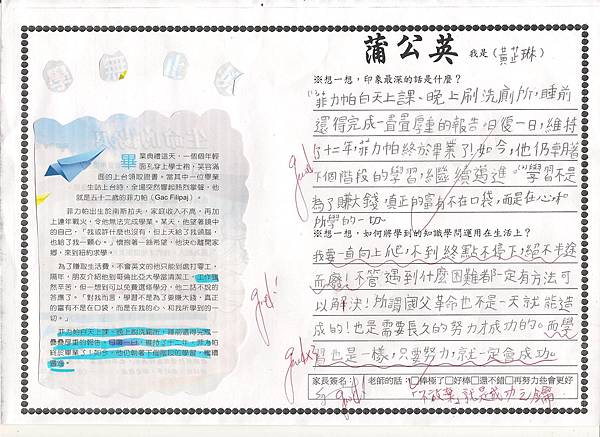 蒲公英
我是(黃芷琳)
畢業典禮這天，一個個年輕
面孔穿上學士袍，笑容滿
面的上台領取證書。當其中一位畢業
生站上台時，全場突然響起熱烈掌聲，他
就是五十二歲的菲力帕（Gac Filipaj）。
菲力帕出生於南斯拉夫，家庭收入不高，再加
上連年戰火，令他無法完成學業。某天，他望著鏡中
的自己，「我或許什麼也沒有，但上天給了我頭腦，
也給了我一顆心。」懷抱著一絲希望，他決心離開家
鄉，來到紐約求學。
為了賺取生活費，不會英文的他只能到處打零工，
隔年，朋友介紹他到哥倫比亞大學當清潔工，工作雖
然辛苦，但一想到可以免費選修學分，他二話不說的
答應了。「對我而言，學習不是為了要賺大錢，真正
的富有不是在口袋，而是在我的心，和我所學到的一
切。」
菲力帕白天上課、晚上刷洗廁所，睡前還得完成一
疊疊厚重的報告，日復一日，維持了十二年，菲力帕
終於畢業了！如今，他仍朝著下個階段的學習，繼續
邁進。
※想一想，印象最深的話是什麼？
菲力帕白天上課、晚上刷洗廁所，睡前
還得完成一疊疊厚重的報告，日復一日，維持
了十二年，菲力帕終於畢業了！如今，他仍朝著
下個階段的學習，繼續邁進。學習不是
為了賺大錢，真正的富有不在口袋，而是在心和
所學的一切。
※想一想，如何將學到的知識學問運用在生活上？
我要一直向上爬，不到終點不停下，絕不半途
而廢！不管遇到什麼困難都一定有方法可
以解決！所謂國父革命也不是一天就能造
成的！也是需要長久的努力才成功的。而學
習也是一樣，只要努力，就一定會成功。
家長簽名：
老師的話：□棒極了□好棒□還不錯□再努力些會更好
good!